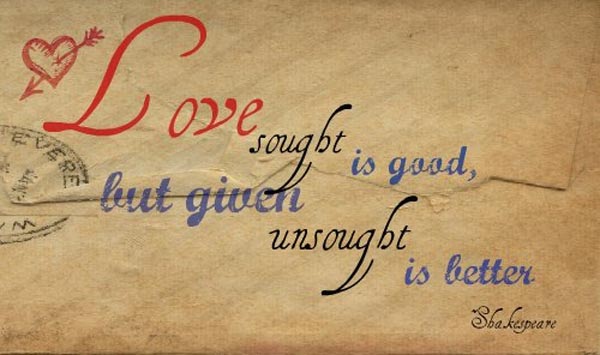 Love
sought
is good,
but given
unsought
is better
Shakespeare
EVERE